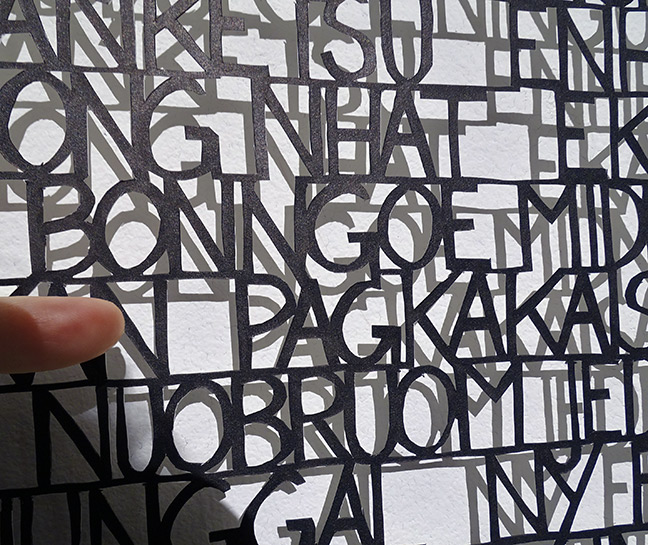 ANKETSU EN
ONG NHAT EK
BONNNGOEMID
AN PAGKAKAIS
NUOBRUOM
UNGGAL NY